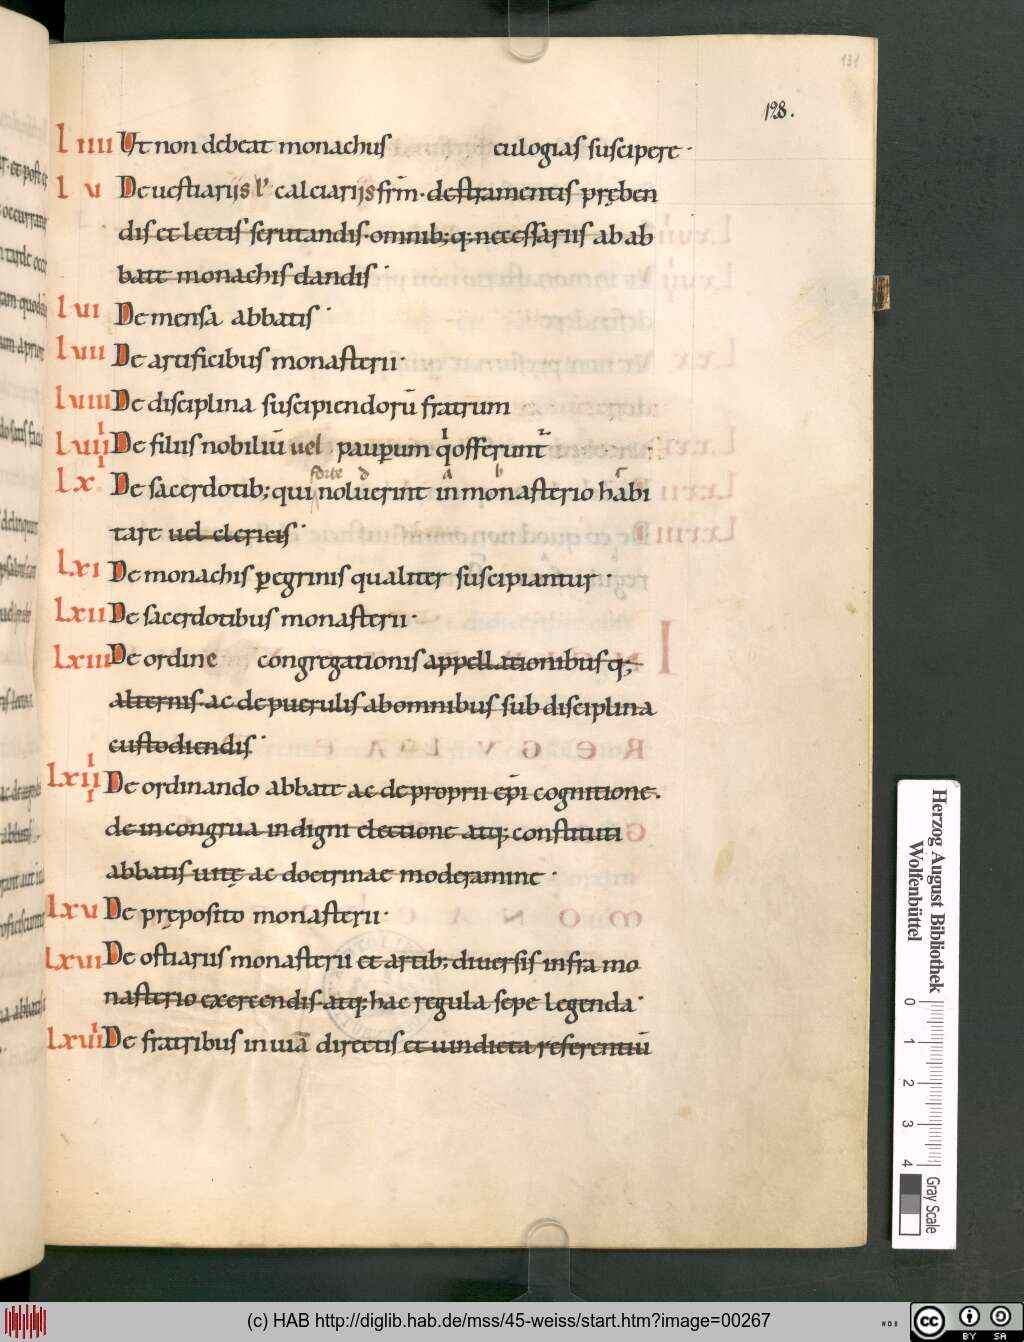 131
128.
Liiii Ut non debeat monachus eulogias suscipere·
Lv De uestiariis ł calciariis frm̄· destramentis pręben
dis et lectis scrutandis· omnib; q; necessariis ab ab
bate monachis dandis·
Lvi De mensa abbatis·
Lvii De artificibus monasterii·
Lviii De disciplina suscipiendorū fratrum
Lviiii De filiis nobiliū uel pauꝑum qͥ offerunt
forte
Lx De sacerdotib; qui noluerint in monasterio habi
tare uel clericis·
Lxi De monachis ꝑegrinis qualiter suscipiantur·
Lxii De sacerdotibus monasterii·
Lxiii De ordine congregationis appellationibus q;
alternis· ac de puerulis ab omnibus sub disciplina
custodiendis·
Lxiiii De ordinando abbate ac de proprii ep̄i cognitione·
de incongrua indigni electione atq; constituti
abbatis uitę ac doctrinae moderamine·
Lxv De pręposito monasterii·
Lxvi De ostiariis monasterii et artib; diuersis infra mo
nasterio exercendis· atq; hac regula sepe legenda·
Lxvii De fratribus in uiā directis et uindicta referentiū
Herzog August Bibliothek
Wolfenbüttel
0 1 2 3 4
Gray Scale
(c) HAB http://diglib.hab.de/mss/45-weiss/start.htm?image=00267
cc BY SA